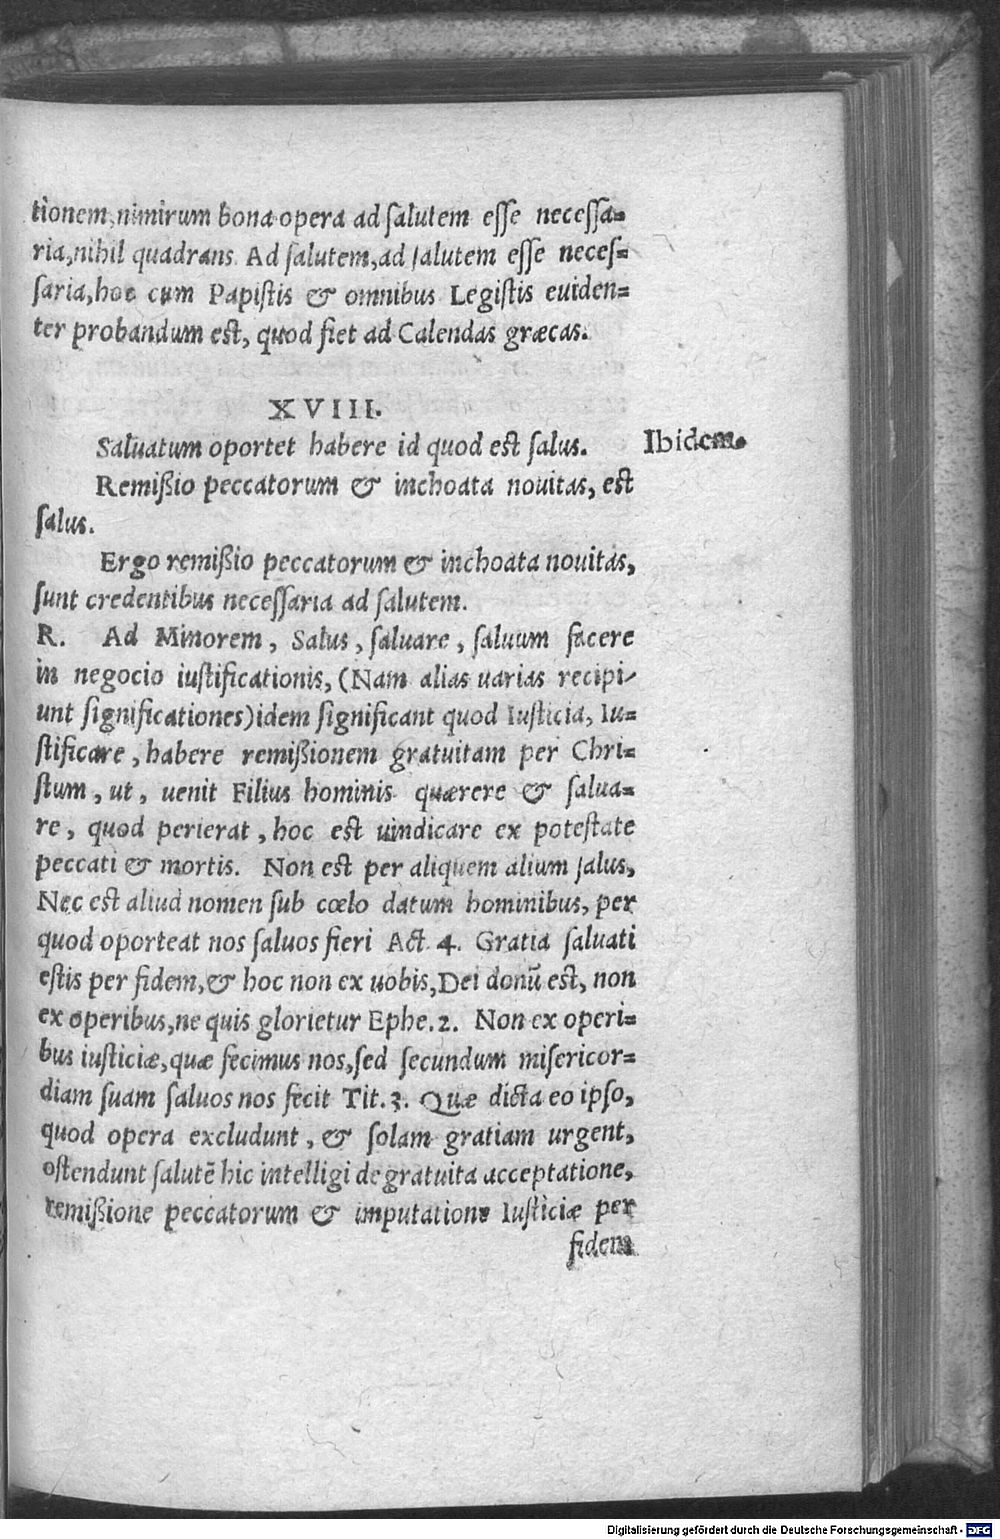 tionem, nimirum bona opera ad ſalutem eſſe neceſſa=
ria, nihil quadrans. Ad ſalutem, ad ſalutem eſſe neceſ=
ſaria, hoc cum Papiſtis & omnibus Legiſtis euiden=
ter probandum eſt, quod fiet ad Calendas græcas.
XVIII.
Saluatum oportet habere id quod eſt ſalus. Ibidem.
Remißio peccatorum & inchoata nouitas, eſt
ſalus.
Ergo remißio peccatorum & inchoata nouitas,
ſunt credentibus neceſſaria ad ſalutem.
R. Ad Minorem, Salus, ſaluare, ſaluum facere
in negocio iuſtificationis, (Nam alias uarias recipi-
unt ſignificationes) idem ſignificant quod Iuſticia, Iu=
ſtificare, habere remißionem gratuitam per Chri=
ſtum, ut, uenit Filius hominis quærere & ſalua=
re, quod perierat, hoc eſt uindicare ex poteſtate
peccati & mortis. Non eſt per aliquem alium ſalus,
Nec eſt aliud nomen ſub cœlo datum hominibus, per
quod oporteat nos ſaluos fieri Act. 4. Gratia ſaluati
eſtis per fidem, & hoc non ex uobis, Dei donũ eſt, non
ex operibus, ne quis glorietur Ephe. 2. Non ex operi=
bus iuſticiæ, quæ fecimus nos, ſed ſecundum miſericor=
diam ſuam ſaluos nos fecit Tit. 3. Quæ dicta eo ipſo,
quod opera excludunt, & ſolam gratiam urgent,
oſtendunt ſalutẽ hic intelligi de gratuita acceptatione,
remißione peccatorum & imputatione Iuſticiæ per
fidem
Digitalisierung gefördert durch die Deutsche Forschungsgemeinschaft - DFG